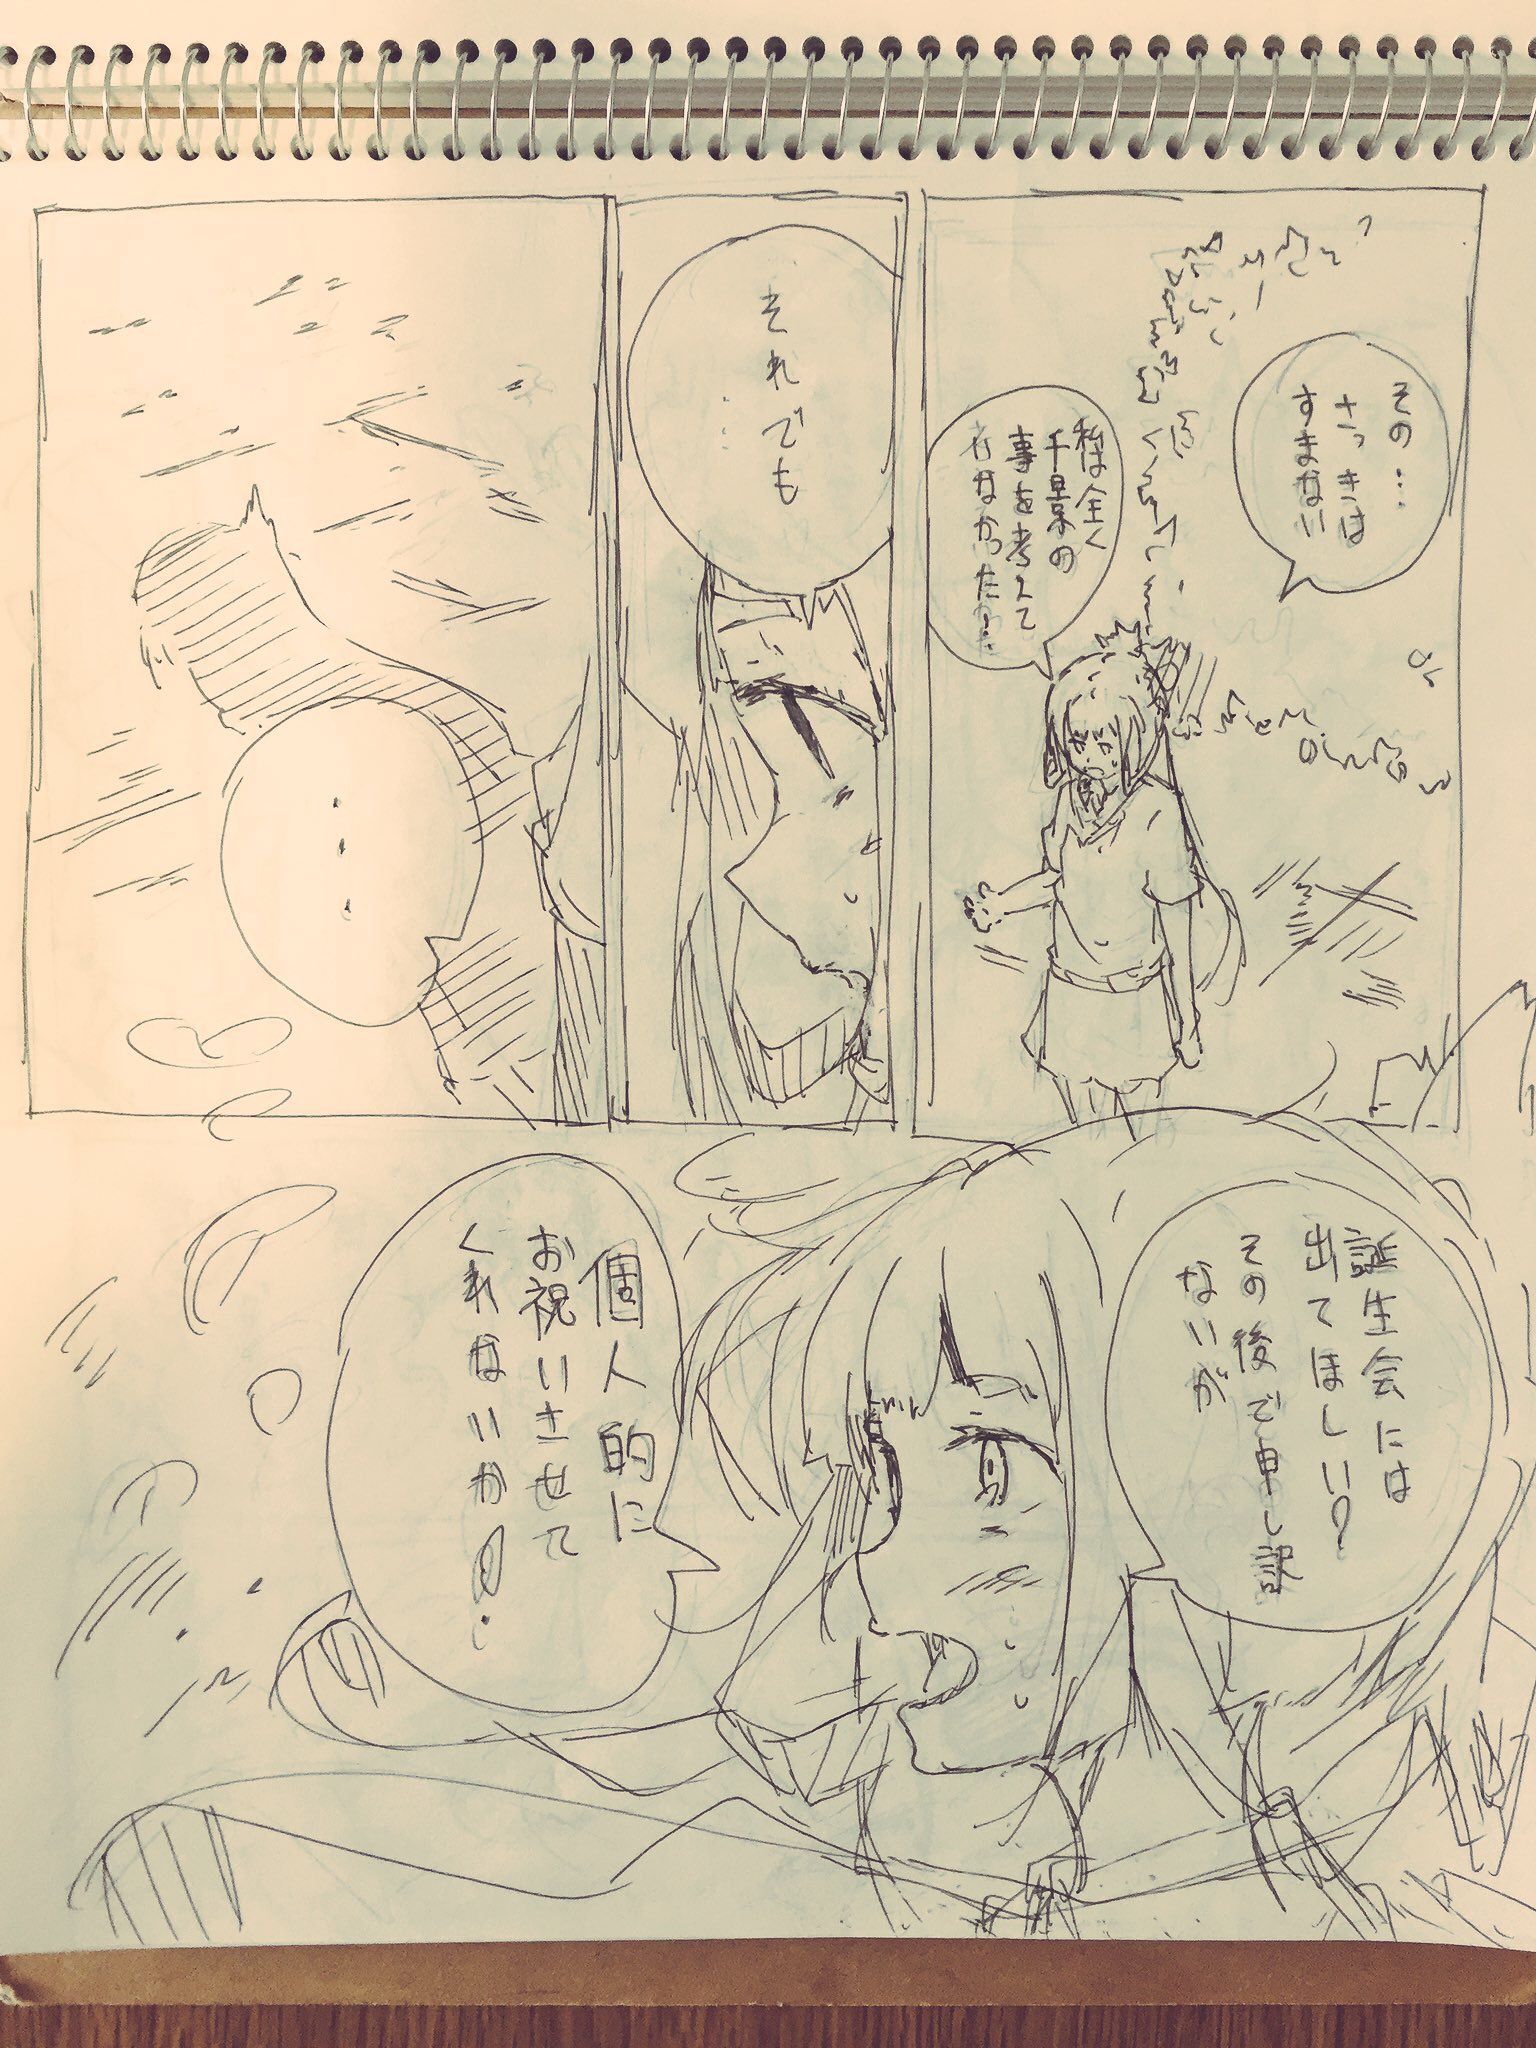 その…
さっきは
すまない
私は全く
千景の
事を考えて
なかった…
それでも
……
…
誕生会には
出てほしい？
その後で申し訳
ないが
個人的に
お祝いさせて
くれないか